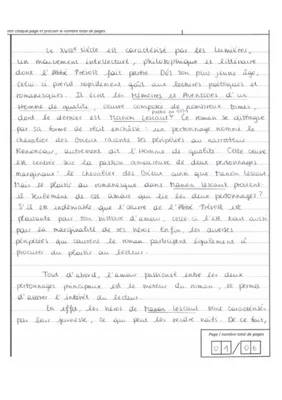 Le XVIIIe siècle est caractérisé par les Lumières,
un mouvement intellectuel, philosophique et littéraire
dont l'Abbé Prévost fait partie. Dès son plus jeune âge,
celui-ci prend rapidement goût aux lectures poétiques et
romanesques. Il écrit les Mémoires et Aventures d'un
Homme de qualité, œuvre composée de nombreux tomes,
dont le dernier est Manon Lescaut. Ce roman se distingue
par sa forme de récit enchâssé : un personnage nommé le
chevalier des Grieux raconte ses péripéties au narrateur
Renoncour, autrement dit l'Homme de qualité. Cette œuvre
est centrée sur la passion amoureuse de deux personnages
marginaux : le chevalier des Grieux ainsi que Manon Lescaut.
Mais le plaisir au romanesque dans Manon Lescaut provient-
il seulement de cet amour qui lie les deux personnages ?
S'il est indéniable que l'œuvre de l'Abbé Prévost est
plaisante pour son histoire d'amour, celle-ci l'est tout aussi
par sa marginalité de ses héros. Enfin, les diverses
péripéties qui œuvrent le roman participent également à
procurer du plaisir au lecteur.
Tout d'abord, l'amour passionné entre les deux
personnages principaux est le moteur du roman, et permet
d'attirer l'intérêt du lecteur.
En effet, les héros de Manon Lescaut sont caractérisés
par leur jeunesse, ce qui peut les rendre naïfs. De ce fait,
Page / nombre total de pages
01/06